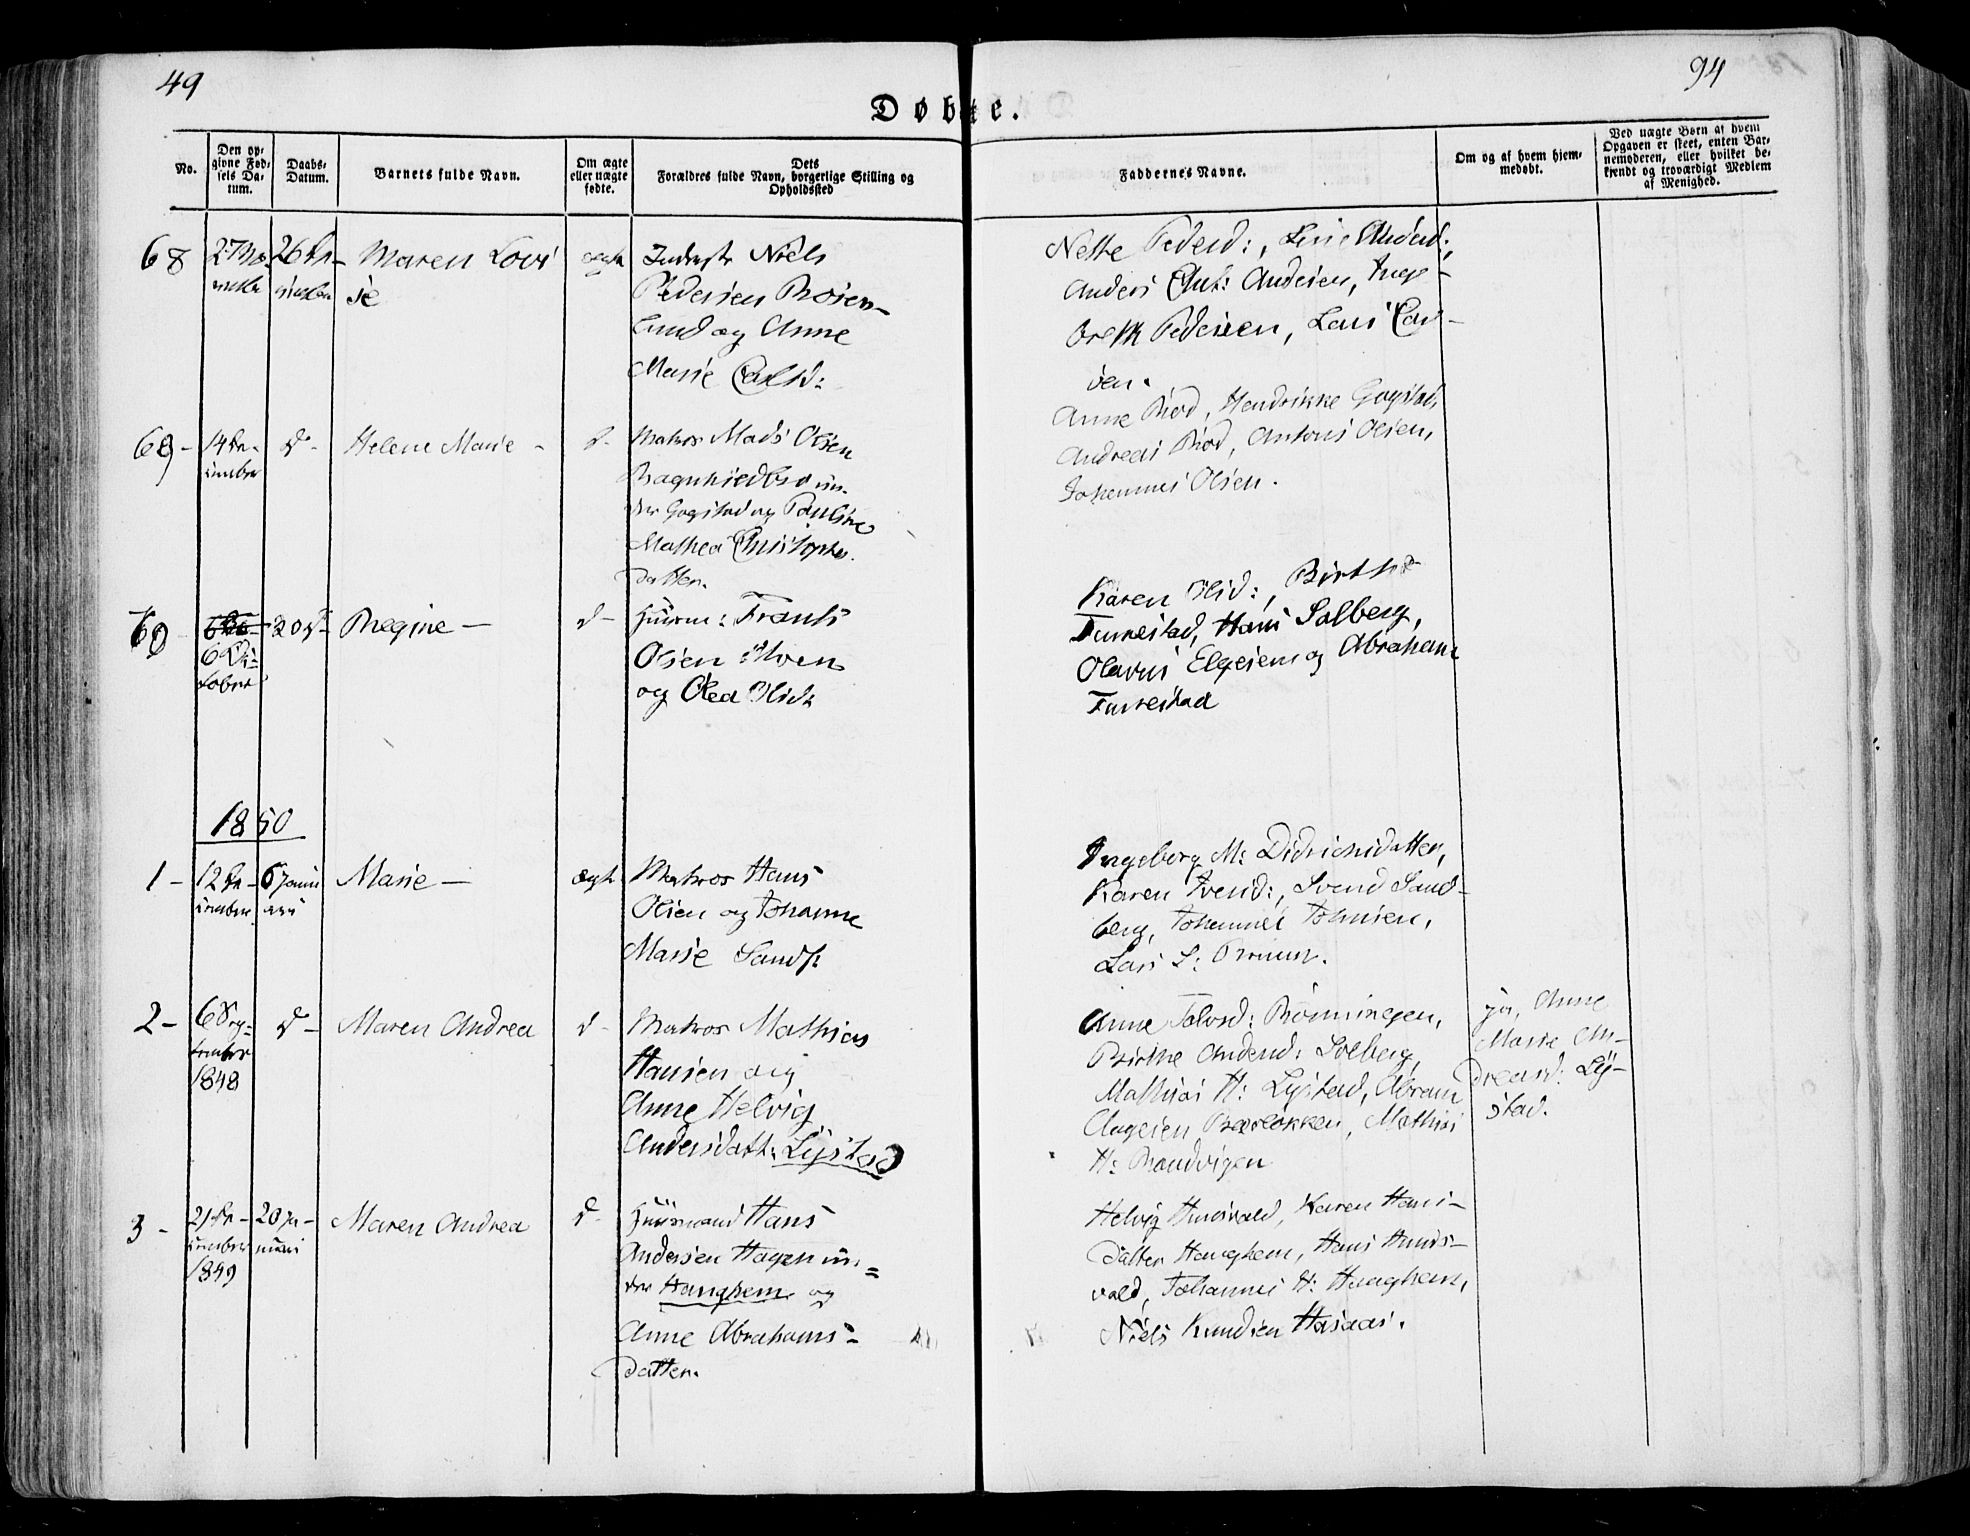 49
94
Døbte.
No.
Den op-
givne Fød-
sels Da-
tum.
Daabs-
Datum.
Barnets fulde Navn.
Om ægte
eller uægte
fødte.
Dets
Forældres fulde Navn, borgerlige Stilling og
Opholdssted
Faddernes Navne.
Om og af hvem hjem-
medøbt.
Ved uægte Børn af hvem
Opgaven er skeet, enten Bar-
nemoderen, eller hvilket be-
kjendt og troværdigt Medlem
af Menighed.
68
26 De-
Maren Lovi
se
ægte
Niels
Pedersen Rosen-
lund og Anne
Marie Carlsd:
Nette Pedersd:, Andersd:,
Anders Chr: Andersen, Inge-
breth Pedersen, Lars Car-
sen.
69 -
14 De-
cember
d -
Helene Marie -
d -
Matros Mads Olsen
un-
der Gogstad og Pauline
Mathea Christophers-
datter.
Anne Riod, Hendrikke Gogstad,
Andreas Riod, Antonis Olsen,
Johannes Olsen.
6 Oc-
tober
30 d -
Regine -
d -
Huusm: Frants
Olsen Moen
og Olea Olsd:
Karen Olsd:, Birthe
Furrestad, Hans Solberg,
Olavus Elgesem og Abraham
Furrestad
1850
1 -
12 De-
cember
6 Janu
ari
Marie -
ægte
Matros Hans
Olsen og Johanne
Marie Sandb:
Ingeborg M: Didrichsdatter,
Karen Svend:, Svend Sand-
berg, Johannes Johnsen,
Lars L:
2 -
6 Sep-
tember
1848
d -
Maren Andrea
d -
Matros Mathias
Hansen og
Anne Helvig
Andersdatt: Lystad
Anne Tolvsd: Rønningen,
Birthe Andersd: Solberg,
Mathias H: Lystad, Abram
Aagesen Bærløkken, Mathias
H: Brandvigen
ja, Anne
Marie An-
dreasd: Ly-
stad.
3 -
21 De-
cember
1849
20 Ja-
nuari
Maren Andrea
d -
Huusmand Hans
Andersen Hagen un-
der Haughem og
Anne Abrahams-
datter.
Helvig Hunsvald, Karen Hans-
datter Haughem, Hans Huns-
vald, Johannes H: Haughem,
Niels Knudsen Hasaas.